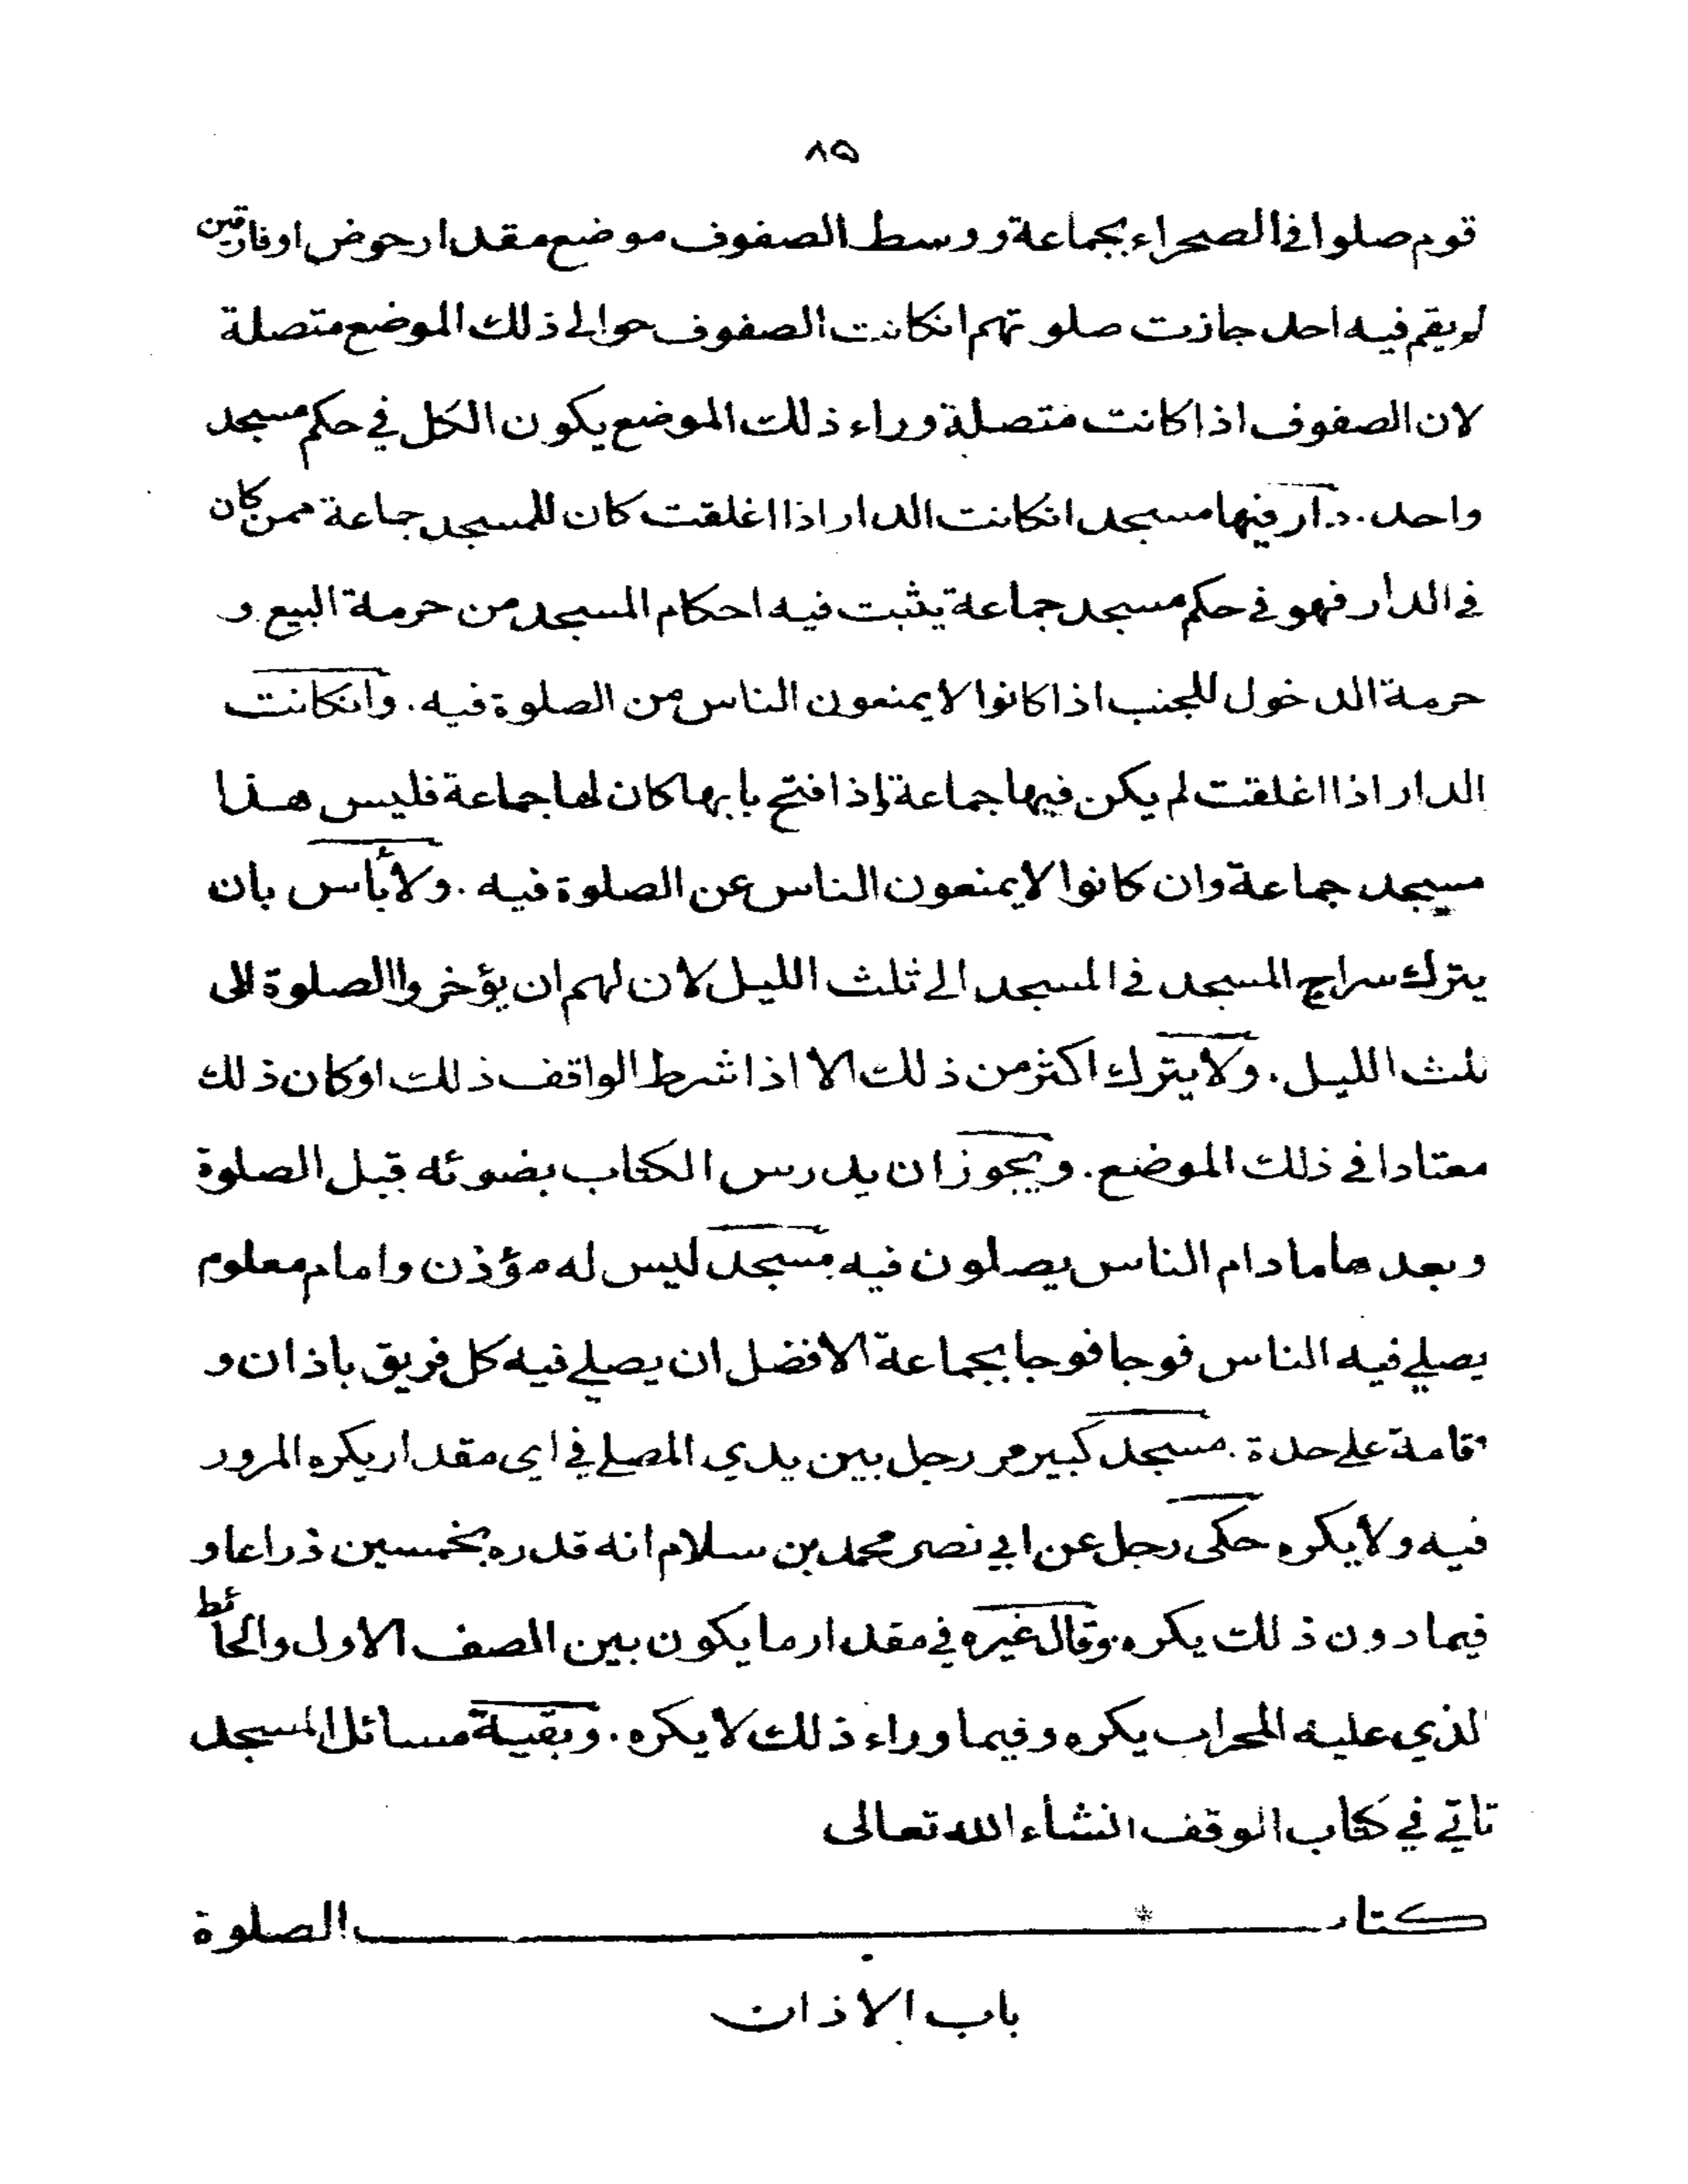 ٨٥
قوم صلوا في الصحراء بجماعة ووسط الصفوف موضع مقدار حوض او فارقين
لم يقم فيه احد جازت صلوتهم انكانت الصفوف حوالي ذلك الموضع متصلة
لان الصفوف اذا كانت متصلة وراء ذلك الموضع يكون الكل في حكم مسجد
واحد. دار فيها مسجد انكانت الدار اذا اغلقت كان للمسجد جماعة ممن كان
في الدار فهو في حكم مسجد جماعة يثبت فيه احكام المسجد من حرمة البيع و
حرمة الدخول للجنب اذا كانوا لا يمنعون الناس من الصلوة فيه. وانكانت
الدار اذا اغلقت لم يكن فيها جماعة إذا فتح بابها كان لها جماعة فليس هذا
مسجد جماعة وان كانوا لا يمنعون الناس عن الصلوة فيه. ولا بأس بان
يترك سراج المسجد في المسجد الى ثلث الليل لان لهم ان يؤخروا الصلوة الى
ثلث الليل. ولا يترك اكثر من ذلك الا اذا شرط الواقف ذلك او كان ذلك
معتادا في ذلك الموضع. ويجوز ان يدرس الكتاب بضوئه قبل الصلوة
وبعدها مادام الناس يصلون فيه. مسجد ليس له مؤذن وامام معلوم
يصلي فيه الناس فوجا فوجا بجماعة الافضل ان يصلي فيه كل فريق باذان و
اقامة على حدة. مسجد كبير مر رجل بين يدي المصلي في اي مقدار يكره المرور
فيه ولا يكره حكى رجل عن ابي نصر محمد بن سلام انه قدره بخمسين ذراعا و
فيما دون ذلك يكره. وقال غيره في مقدار ما يكون بين الصف الاول والحائط
الذي عليه المحراب يكره وفيما وراء ذلك لا يكره. وبقية مسائل المسجد
تاتي في كتاب الوقف انشاء الله تعالى
كتاب * الصلوة
باب الاذان